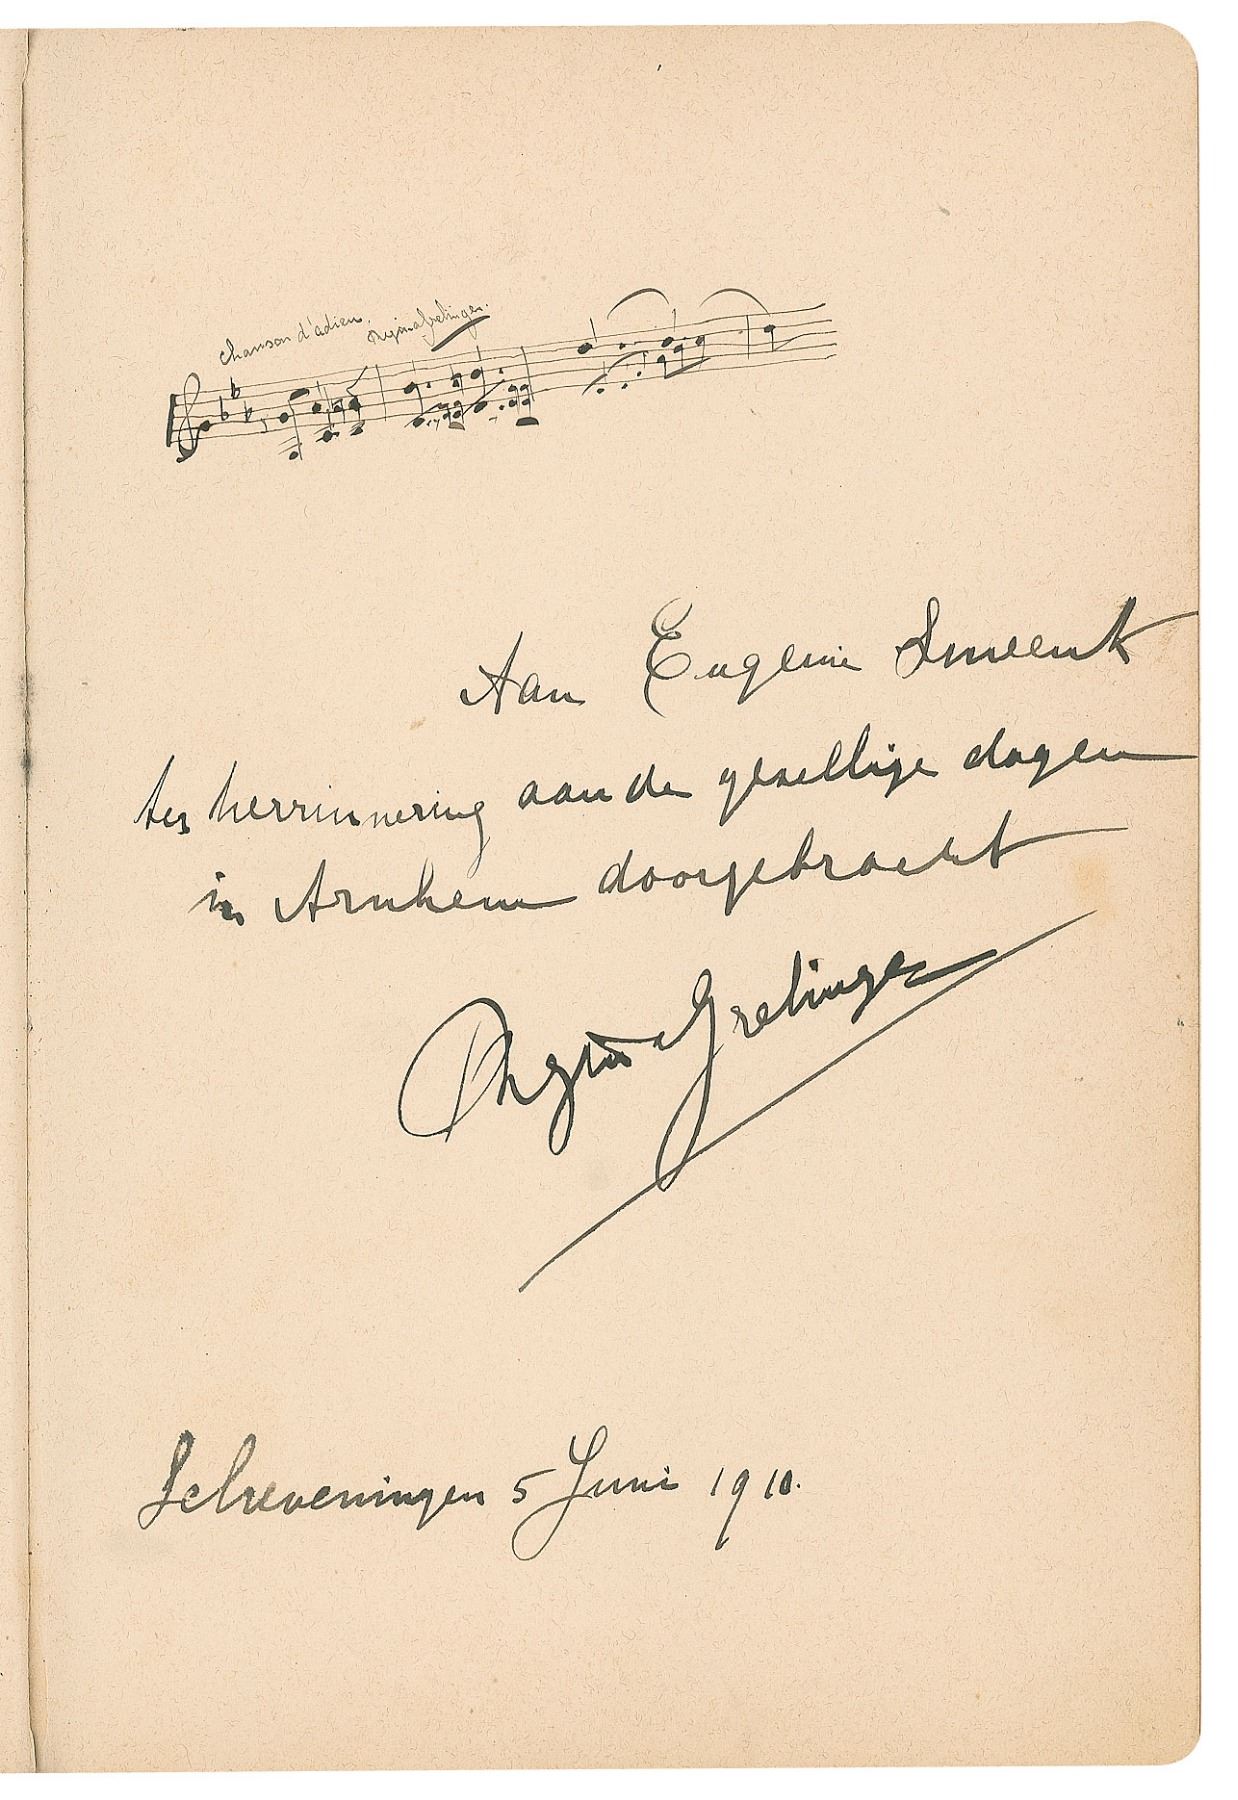 chanson d'adieu.
Aan Eugenie Smeenk
ter herrinnering aan de gezellige dagen
in Arnhem doorgebracht
Grelinger
Scheveningen 5 Juni 1910.